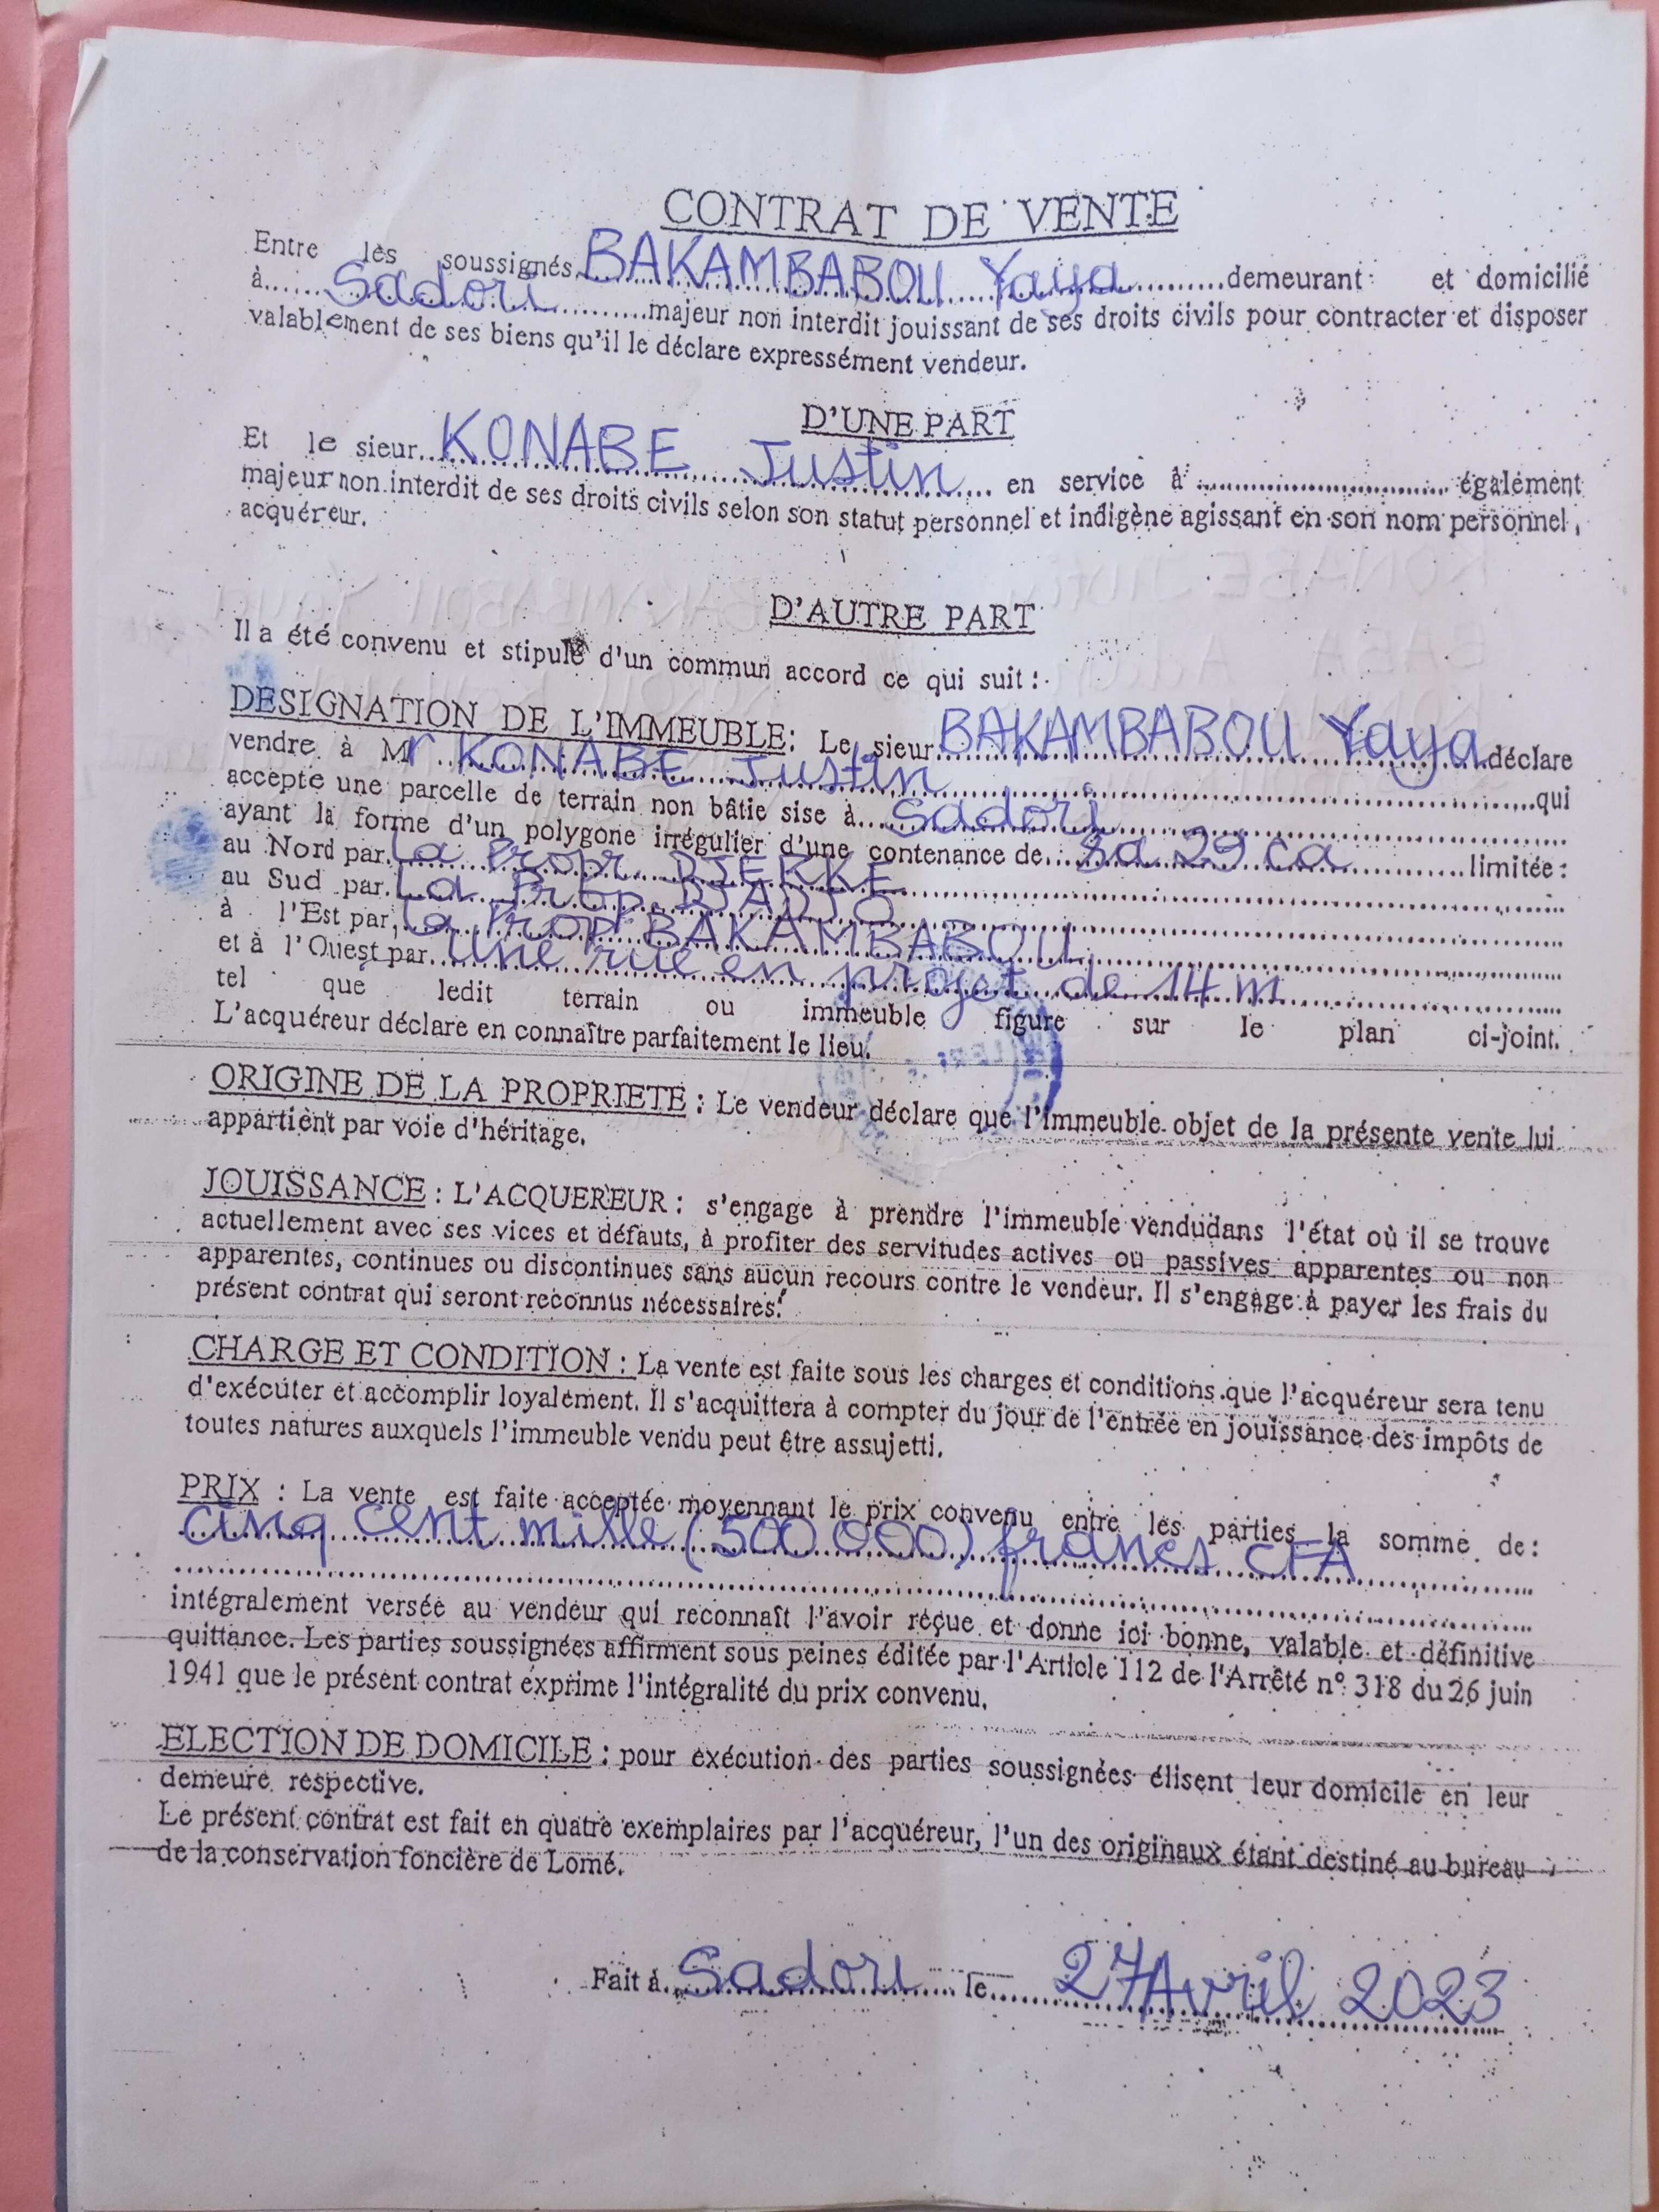 CONTRAT DE VENTE
Entre les soussignés BAKAMBABOU Yaya demeurant et domicilié
à Sadori majeur non interdit jouissant de ses droits civils pour contracter et disposer
valablement de ses biens qu'il le déclare expressément vendeur.
D'UNE PART
Et le sieur KONABE Justin en service à également
majeur non interdit de ses droits civils selon son statut personnel et indigène agissant en son nom personnel,
acquéreur.
D'AUTRE PART
Il a été convenu et stipulé d'un commun accord ce qui suit :
DESIGNATION DE L'IMMEUBLE: Le sieur BAKAMBABOU Yaya déclare
vendre à Mr KONABE Justin qui
accepte une parcelle de terrain non bâtie sise à Sadori
ayant la forme d'un polygone irrégulier d'une contenance de 3a 29 ca limitée :
au Nord par la Propr DJERKE
au Sud par La Prop DJADJO
à l'Est par, la Prop BAKAMBABOU
et à l'Ouest par une rue en projet de 14 m
tel que ledit terrain ou immeuble figure sur le plan ci-joint.
L'acquéreur déclare en connaître parfaitement le lieu.
ORIGINE DE LA PROPRIETE : Le vendeur déclare que l'immeuble objet de la présente vente lui
appartient par voie d'héritage.
JOUISSANCE : L'ACQUEREUR : s'engage à prendre l'immeuble vendudans l'état où il se trouve
actuellement avec ses vices et défauts, à profiter des servitudes actives ou passives apparentes ou non
apparentes, continues ou discontinues sans aucun recours contre le vendeur. Il s'engage à payer les frais du
présent contrat qui seront reconnus nécessaires.
CHARGE ET CONDITION : La vente est faite sous les charges et conditions que l'acquéreur sera tenu
d'exécuter et accomplir loyalement. Il s'acquittera à compter du jour de l'entrée en jouissance des impôts de
toutes natures auxquels l'immeuble vendu peut être assujetti.
PRIX : La vente est faite acceptée moyennant le prix convenu entre les parties la somme de :
cinq cent mille (500 000) francs CFA
intégralement versée au vendeur qui reconnaît l'avoir reçue et donne ici bonne, valable et définitive
quittance. Les parties soussignées affirment sous peines éditée par l'Article 112 de l'Arrêté n° 318 du 26 juin
1941 que le présent contrat exprime l'intégralité du prix convenu.
ELECTION DE DOMICILE : pour exécution des parties soussignées élisent leur domicile en leur
demeure respective.
Le présent contrat est fait en quatre exemplaires par l'acquéreur, l'un des originaux étant destiné au bureau
de la conservation foncière de Lomé.
Fait à Sadori le 27 Avril 2023